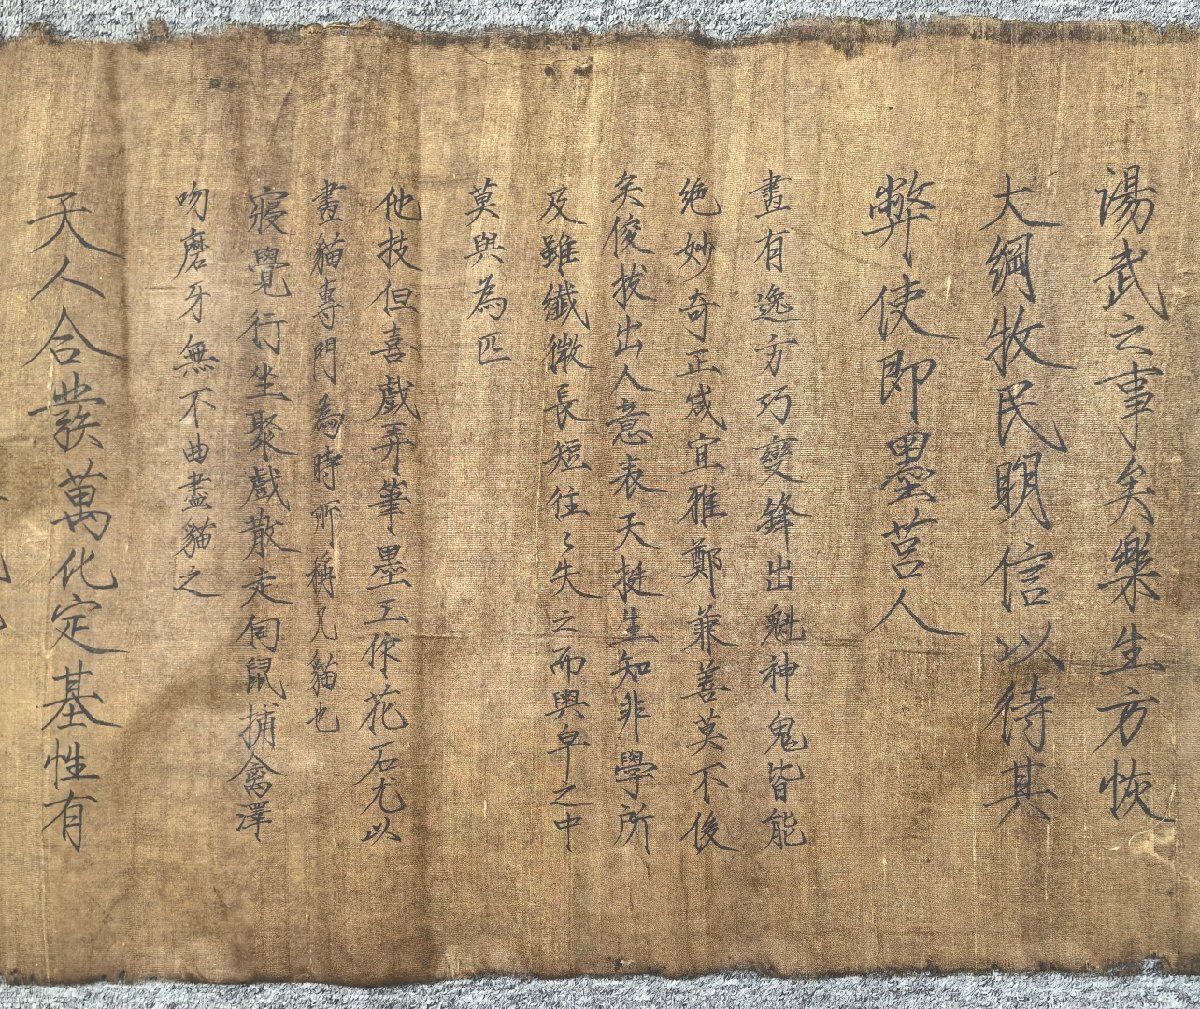 湯武之事矣樂生方恢
大綱牧民明信以待其
弊使即墨莒人
畫有逸方巧變鋒出魁神鬼皆能
絶妙奇正咸宜雅鄭兼善莫不俊
矣俊拔出人意表天挺生知非學所
及雖纖微長短往々失之而輿皁之中
莫與為匹
他技但喜戲弄筆墨工作花石尤以
畫貓專門為時所稱凡貓也
寢覺行坐聚戲散走伺鼠捕禽澤
吻磨牙無不曲盡貓之
天人合發萬化定基性有